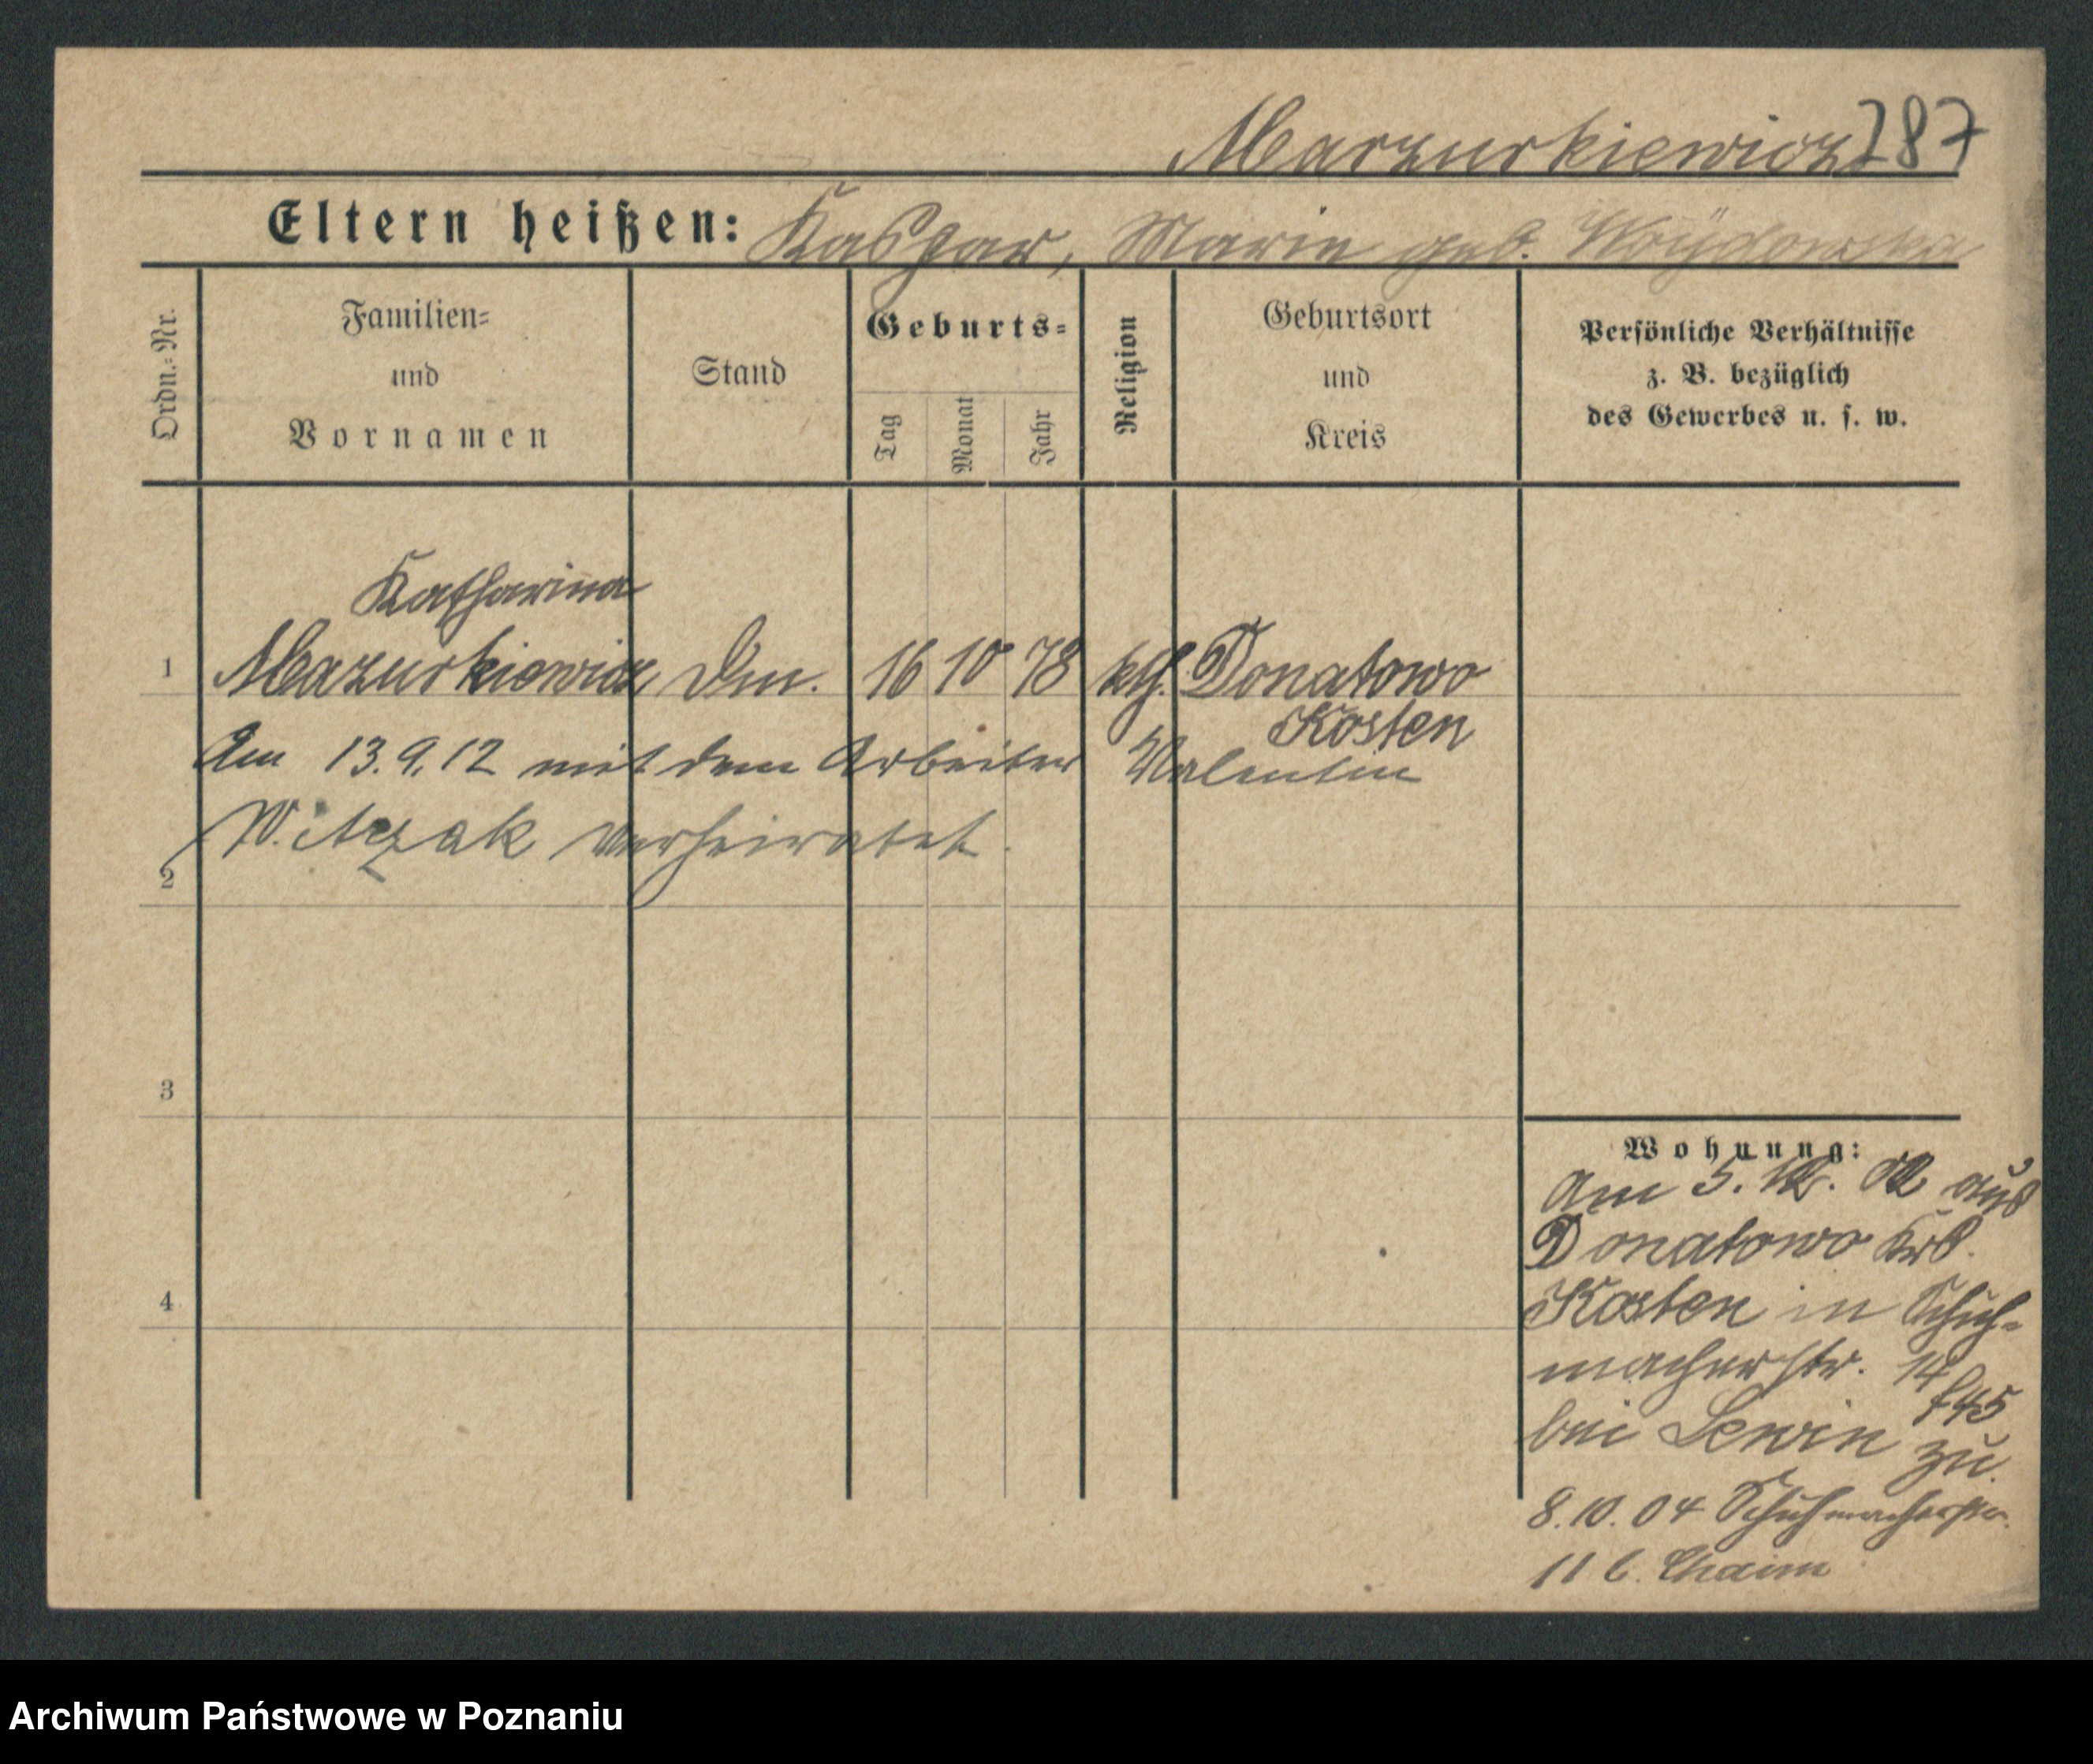 Marzurkiewicz 287
Eltern heißen: Kaspar, Marie geb. Woÿdowska
Ordn.-Nr.
Familien-
und
Vornamen
Stand
Geburts-
Tag
Monat
Jahr
Religion
Geburtsort
und
Kreis
Persönliche Verhältnisse
z. B. bezüglich
des Gewerbes u. s. w.
Katharina
1 Mazurkiewicz 16 10 78 kth. Donatowo
Kosten
Am 13.9.12 mit dem Arbeiter Valentin
Witczak verheiratet.
2
3
4
Wohnung:
Am 5. 02 aus
Donatowo Krs.
Kosten in Schuh-
macherstr. 14
bei Lewin zu.
8.10.04 Schuhmacherstr.
11 b. Chaim
Archiwum Państwowe w Poznaniu